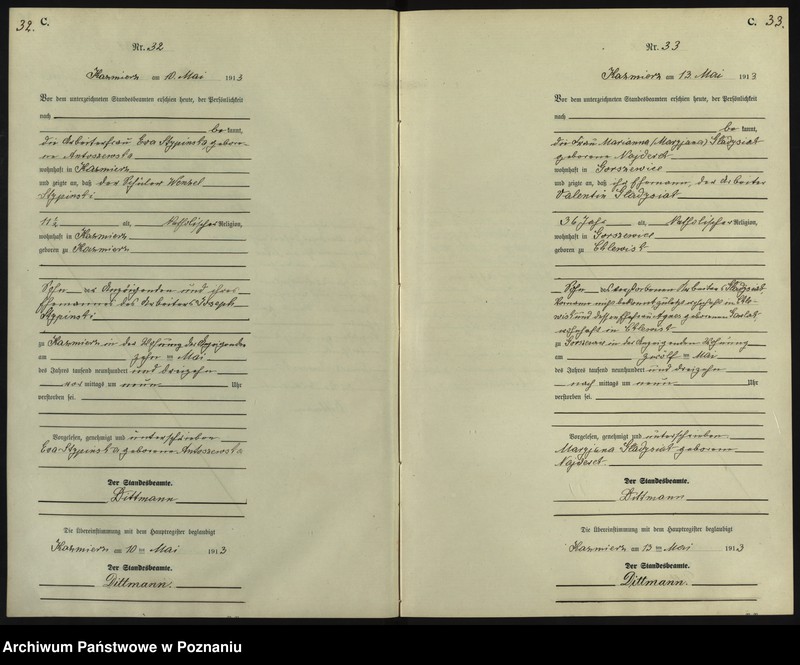 32. C.
Nr. 32
Kazmierz am 10. Mai 1913
Vor dem unterzeichneten Standesbeamten erschien heute, der Persönlichkeit
nach
be kannt,
die Arbeiterfrau Eva Stypinska gebore-
ne Antoszewska
wohnhaft in Kazmierz
und zeigte an, daß der Schüler Wenzel
Stypinski
11½ alt, katholischer Religion,
wohnhaft in Kazmierz
geboren zu Kazmierz
Sohn der Anzeigenden und ihres
Ehemannes des Arbeiters Joseph
Stypinski
zu Kazmierz in der Wohnung der Anzeigenden
am zehn ten Mai
des Jahres tausend neunhundert und dreizehn
vor mittags um neun Uhr
verstorben sei.
Vorgelesen, genehmigt und unterschrieben
Eva Stypinska geborene Antoszewska
Der Standesbeamte.
Dittmann
Die Übereinstimmung mit dem Hauptregister beglaubigt
Kazmierz am 10 ten Mai 1913
Der Standesbeamte.
Dittmann.
C. 33.
Nr. 33
Kazmierz am 13. Mai 1913
Vor dem unterzeichneten Standesbeamten erschien heute, der Persönlichkeit
nach
be kannt,
die Frau Marianna (Maryjana) Gladysiak
geborene Najderek
wohnhaft in Gorszewice
und zeigte an, daß ihr Ehemann, der Arbeiter
Valentin Gladysiak
36 Jahr alt, katholischer Religion,
wohnhaft in Gorszewice
geboren zu
Sohn des verstorbenen Arbeiters Gladysiak
Vorname nicht bekannt zuletzt wohnhaft in
und dessen Ehefrau Agnes geborenen
wohnhaft in
zu Gorszewice in der Anzeigenden Wohnung
am zwölf ten Mai
des Jahres tausend neunhundert und dreizehn
nach mittags um neun Uhr
verstorben sei.
Vorgelesen, genehmigt und unterschrieben
Maryjana Gladysiak geborene
Najderek
Der Standesbeamte.
Dittmann
Die Übereinstimmung mit dem Hauptregister beglaubigt
Kazmierz am 13 ten Mai 1913
Der Standesbeamte.
Dittmann.
Archiwum Państwowe w Poznaniu